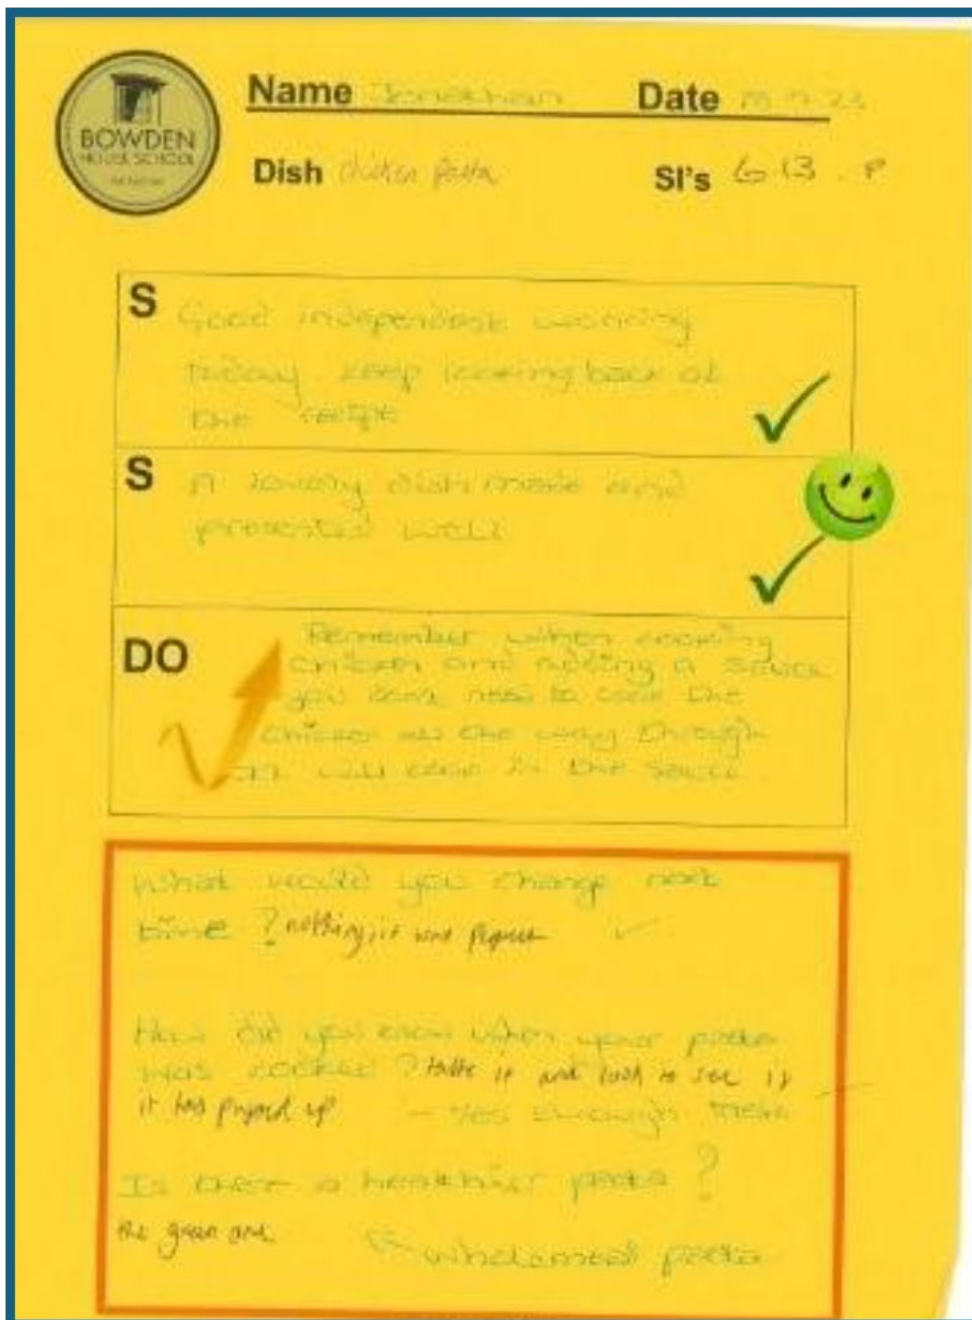 BOWDEN
HOUSE SCHOOL
Name Jonathan Date 23
Dish Chicken pasta SI's G 13 . P
S Good independent working
today. keep looking back at
the recipe
S A lovely dish made and
presented well
DO Remember when cooking
chicken and adding a sauce
you dont need to cook the
chicken all the way through
It will cook in the sauce
What would you change next
time ? nothing, it was
How did you know when your pasta
was cooked ? taste it and look to see if
it has up - Yes
Is there a healthier pasta ?
the green one wholemeal pasta